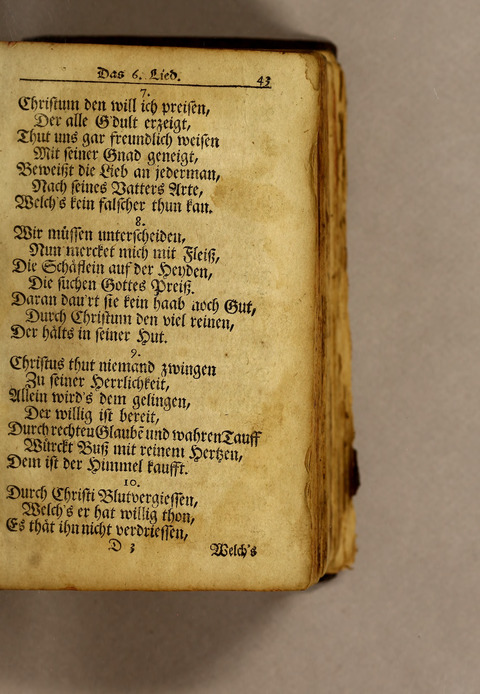 Das 6. Lied. 43
7.
Christum den will ich preisen,
Der alle G'dult erzeigt,
Thut uns gar freundlich weisen
Mit seiner Gnad geneigt,
Beweißt die Lieb an jederman,
Nach seines Vatters Arte,
Welch's kein falscher thun kan.
8.
Wir müssen unterscheiden,
Nun mercket mich mit Fleiß,
Die Schäflein auf der Heyden,
Die suchen Gottes Preiß.
Daran dau'rt sie kein haab noch Gut,
Durch Christum den viel reinen,
Der hälts in seiner Hut.
9.
Christus thut niemand zwingen
Zu seiner Herrlichkeit,
Allein wird's dem gelingen,
Der willig ist bereit,
Durch rechten Glaubē und wahren Tauff
Würckt Buß mit reinem Hertzen,
Dem ist der Himmel kaufft.
10.
Durch Christi Blutvergiessen,
Welch's er hat willig thon,
Es thät ihn nicht verdriessen,
D 3 Welch's